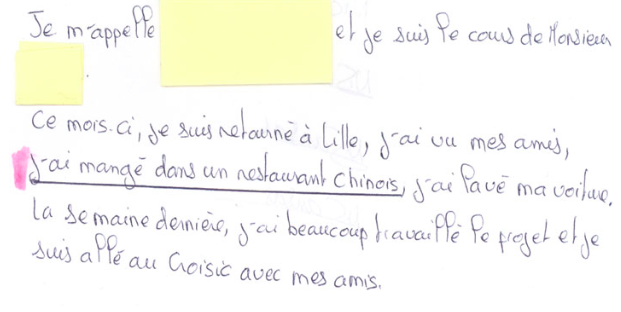 Je m'appelle et je suis le cours de Monsieur
.
Ce mois-ci, je suis retourné à Lille, j'ai vu mes amis,
j'ai mangé dans un restaurant chinois, j'ai lavé ma voiture.
La semaine dernière, j'ai beaucoup travaillé le projet et je
suis allé au Croisic avec mes amis.